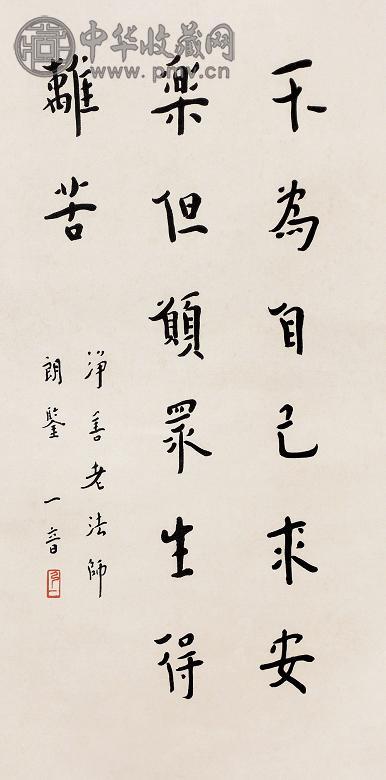 中华收藏网
www.pmcv.cn
不為自己求安
樂但願眾生得
離苦
淨善老法師
朗鑒 一音